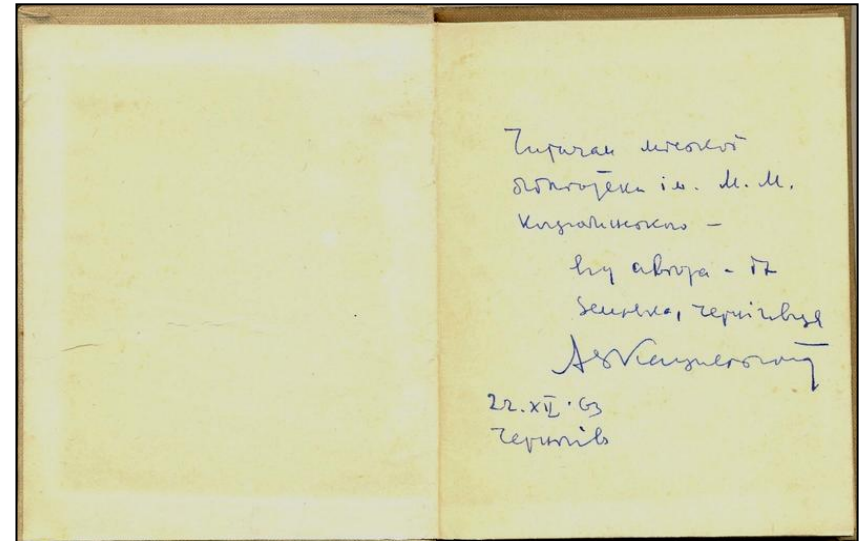 Читачам міської
бібліотеки ім. М. М.
Коцюбинського –
від автора – їх
земляка, чернігівця
22.XII.63
Чернігів